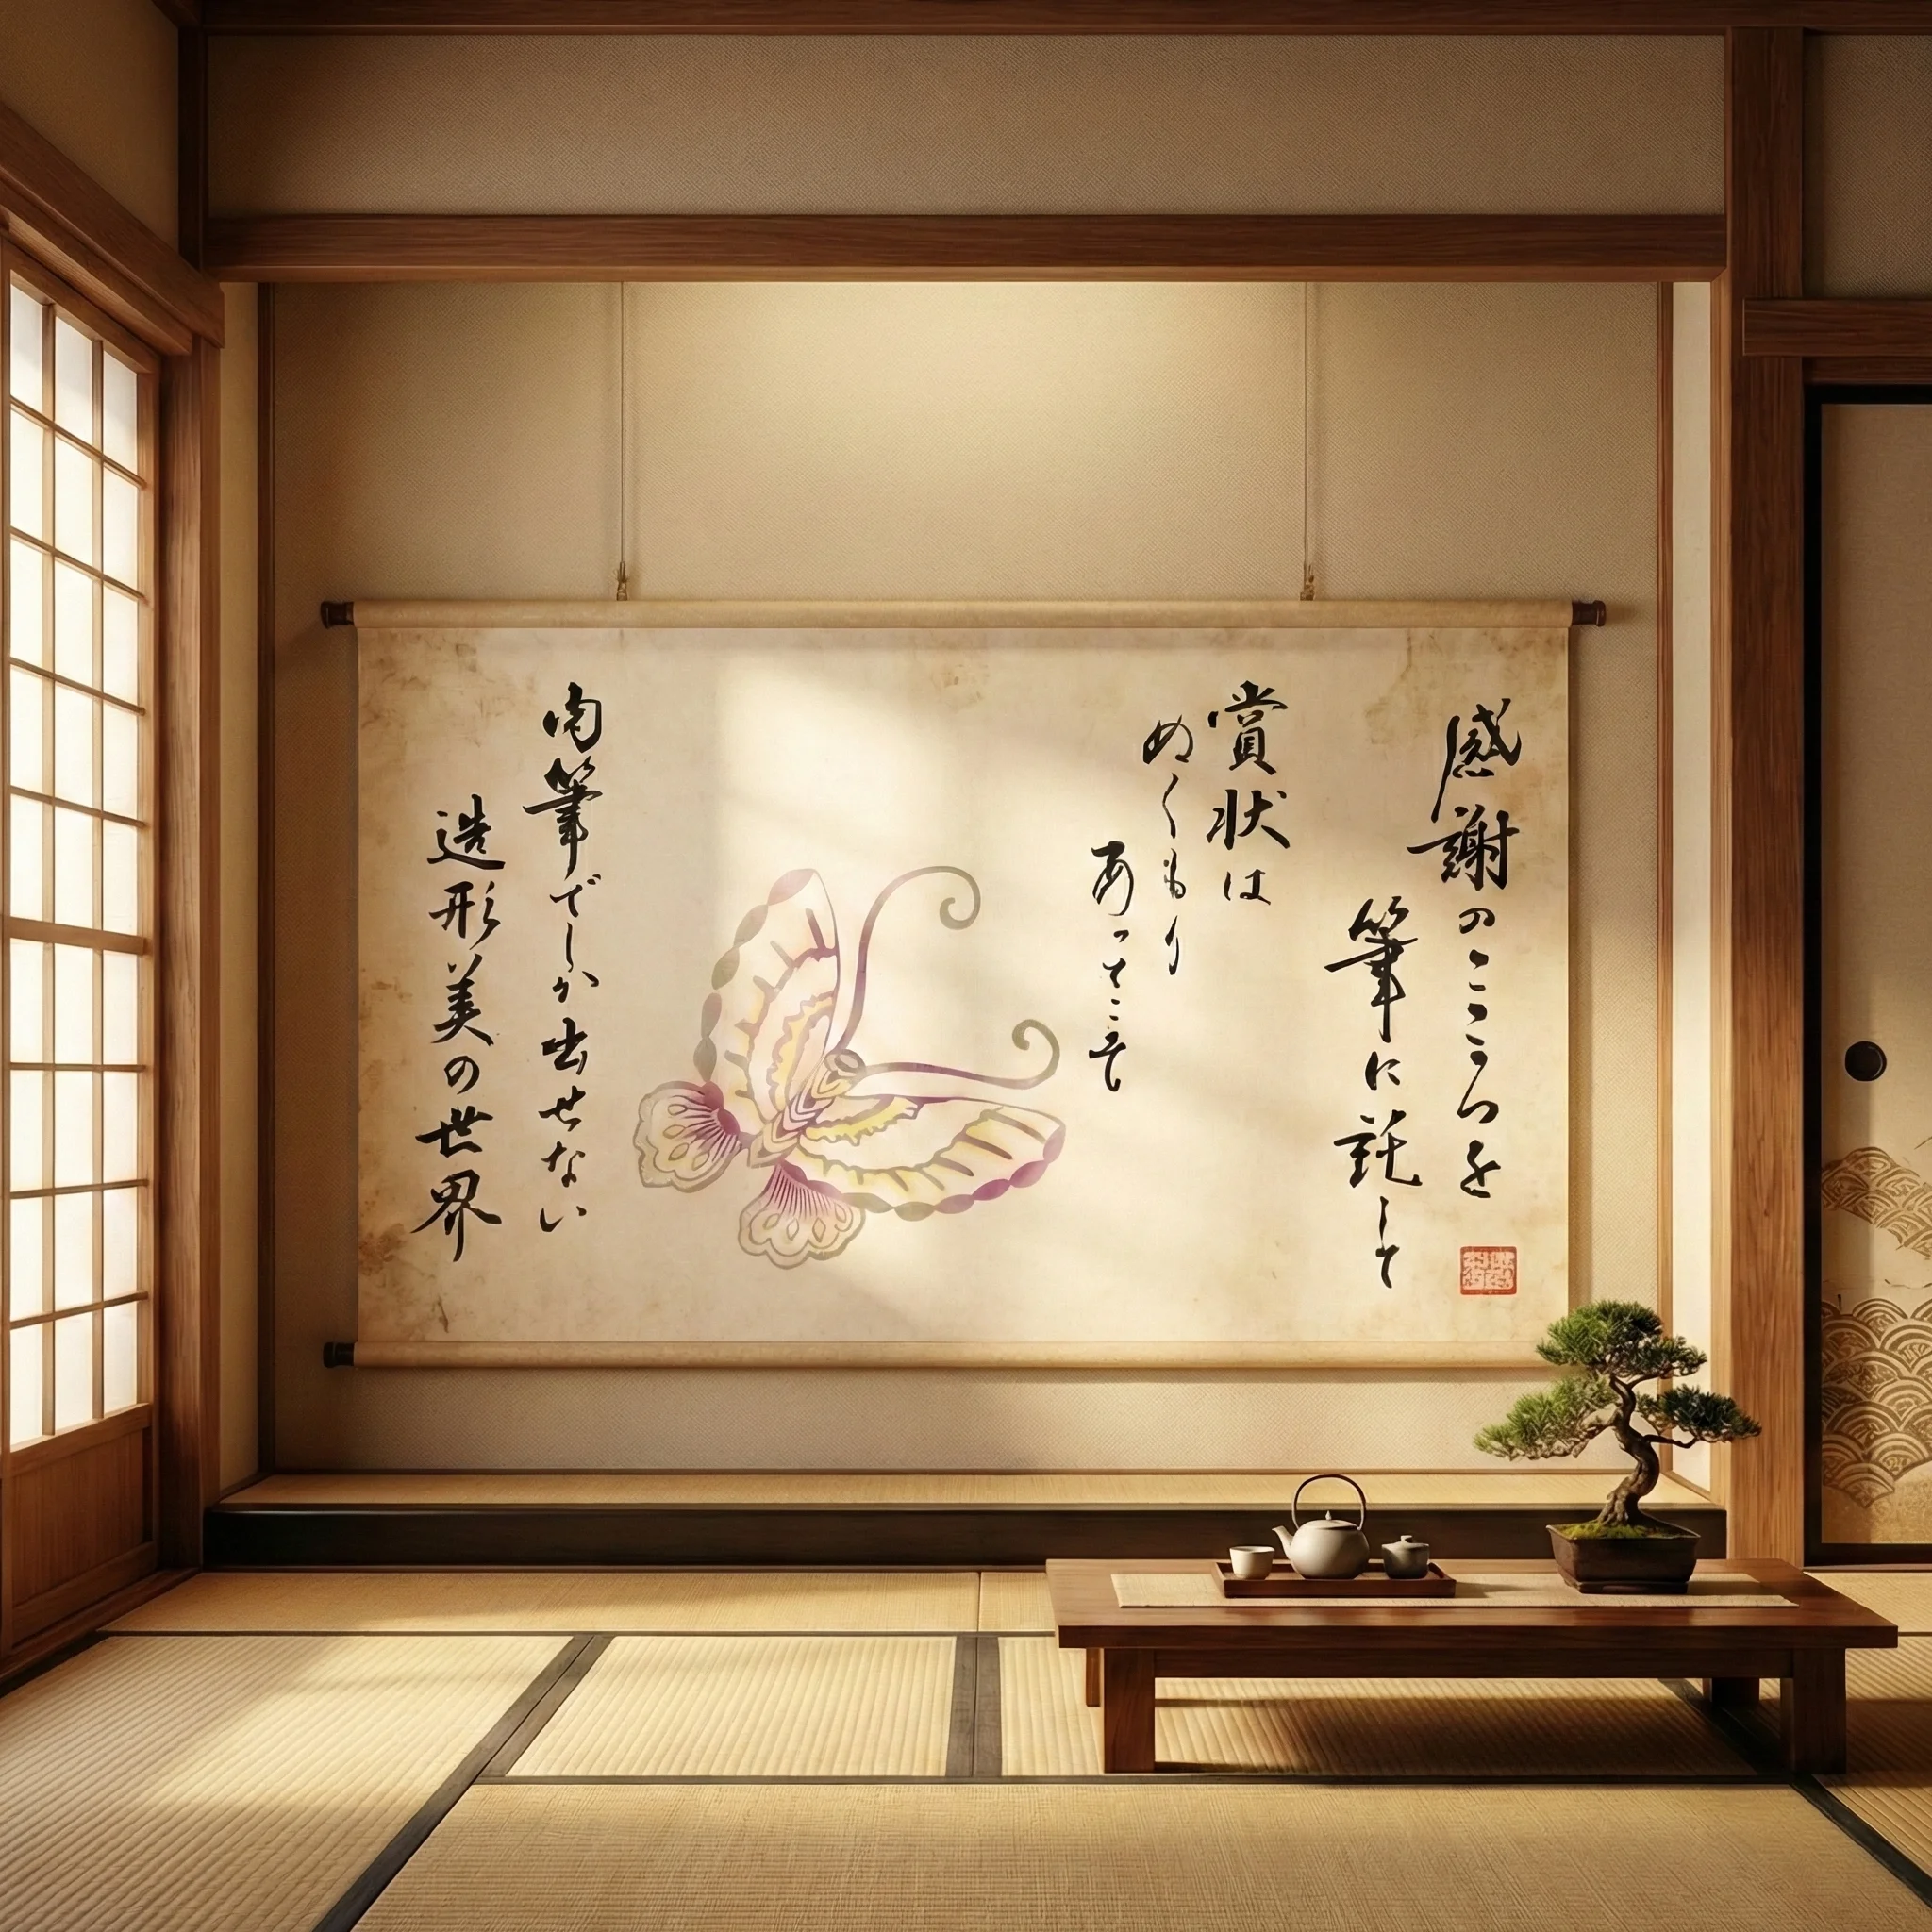 感謝のこころを
筆に託して
賞状は
ぬくもり
あってこそ
肉筆でしか出せない
造形美の世界